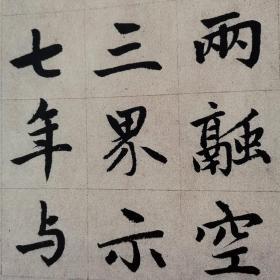 兩融空
三界示
七年与